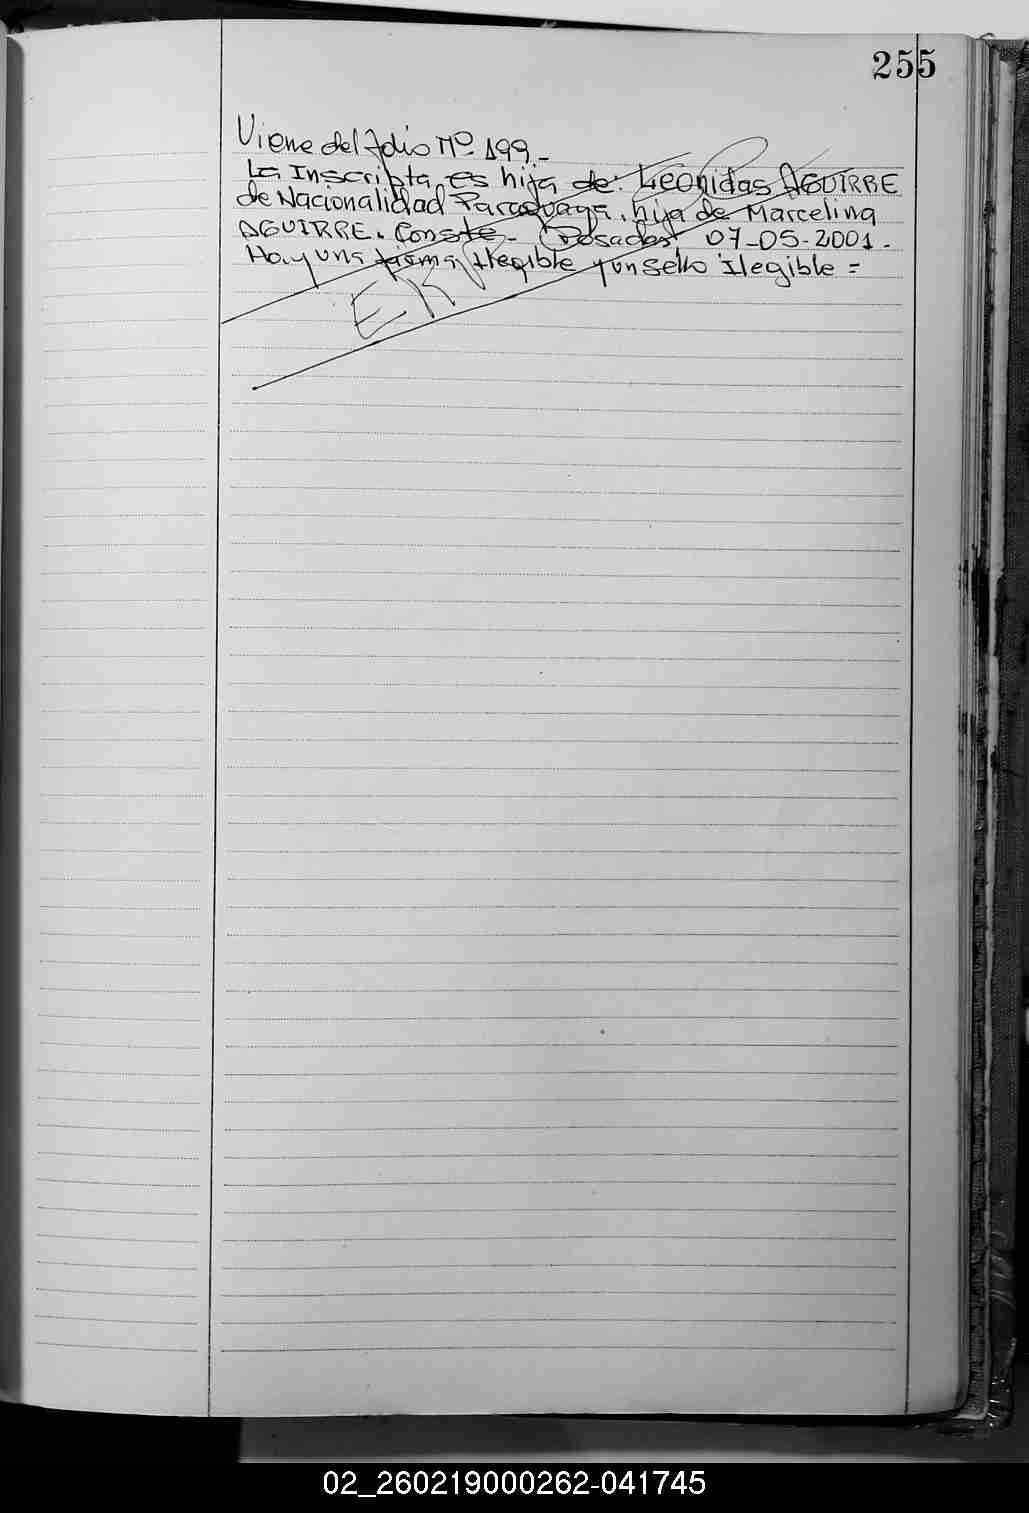 255
Viene del folio Nº 199.-
La Inscripta es hija de: Leonidas AGUIRRE
de Nacionalidad Paraguaya, hija de Marcelina
AGUIRRE. Conste.- Posadas 07-05-2001.-
Hay una firma Ilegible y un Sello Ilegible =
02_260219000262-041745